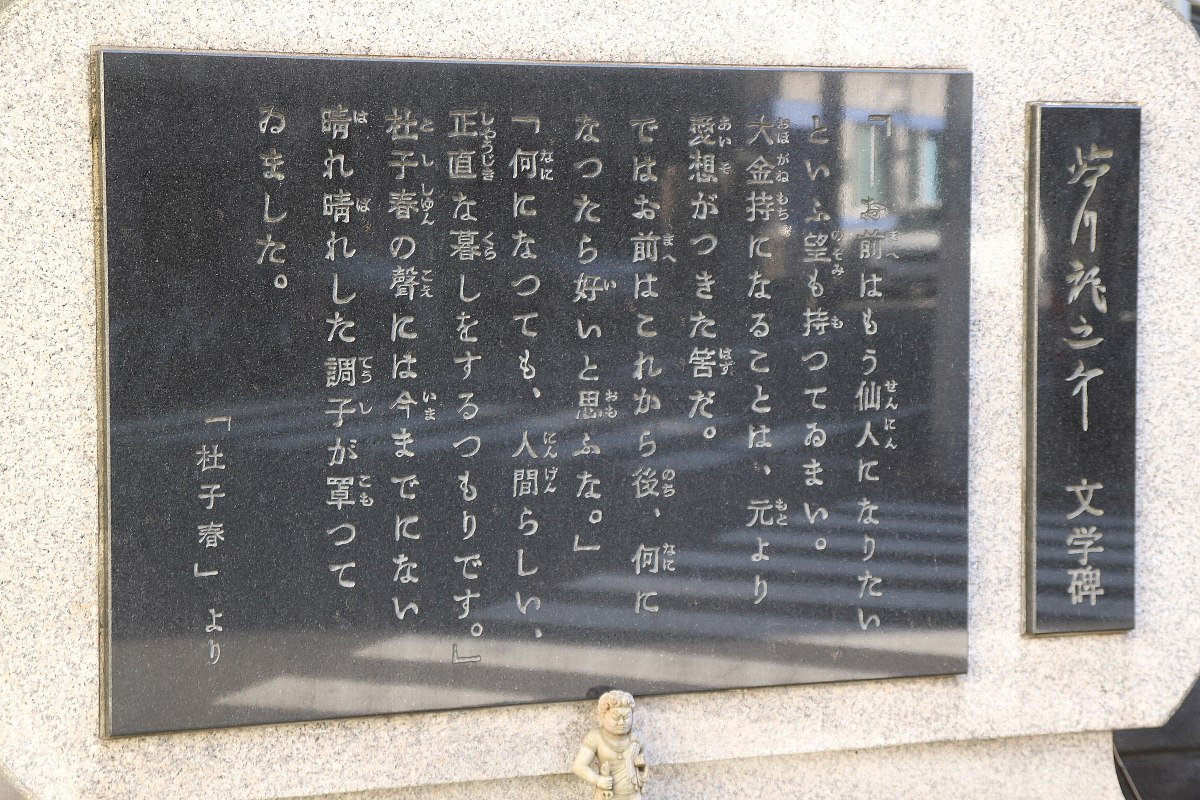 芥川龍之介 文学碑
「―お前はもう仙人になりたい
といふ望も持つてゐまい。
大金持になることは、元より
愛想がつきた筈だ。
ではお前はこれから後、何に
なつたら好いと思ふな。」
「何になつても、人間らしい、
正直な暮しをするつもりです。」
杜子春の聲には今までにない
晴れ晴れした調子が罩つて
ゐました。
「杜子春」より